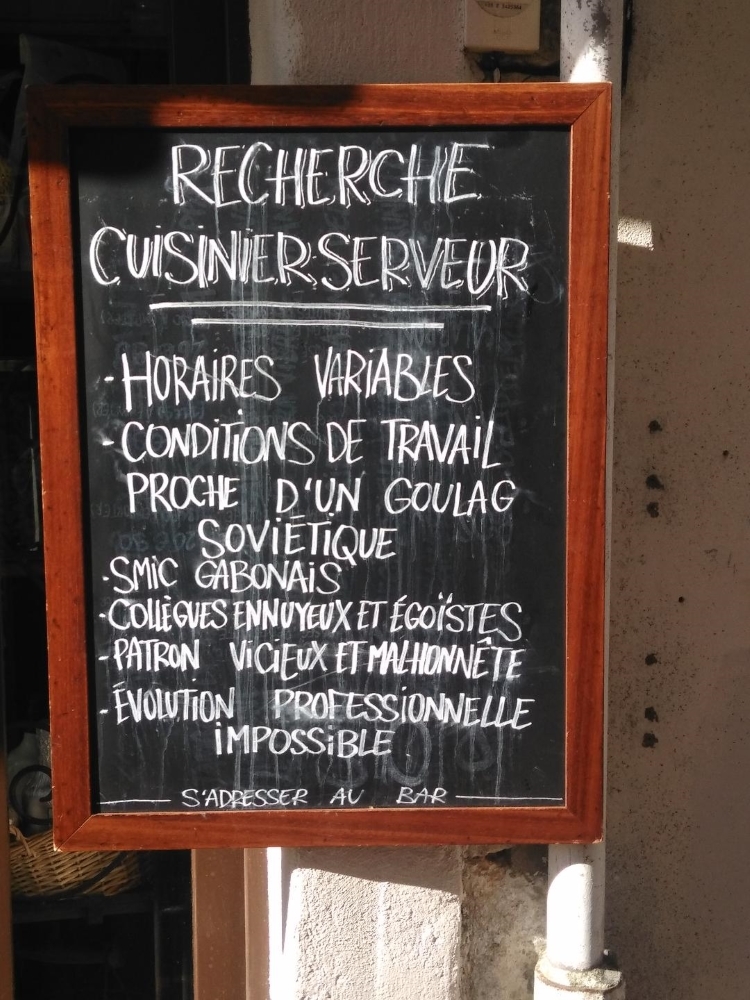 RECHERCHE
CUISINIER·SERVEUR
-HORAIRES VARIABLES
-CONDITIONS DE TRAVAIL
PROCHE D'UN GOULAG
SOVIÉTIQUE
-SMIC GABONAIS
-COLLÈGUES ENNUYEUX ET ÉGOÏSTES
-PATRON VICIEUX ET MALHONNÊTE
-ÉVOLUTION PROFESSIONNELLE
IMPOSSIBLE
S'ADRESSER AU BAR